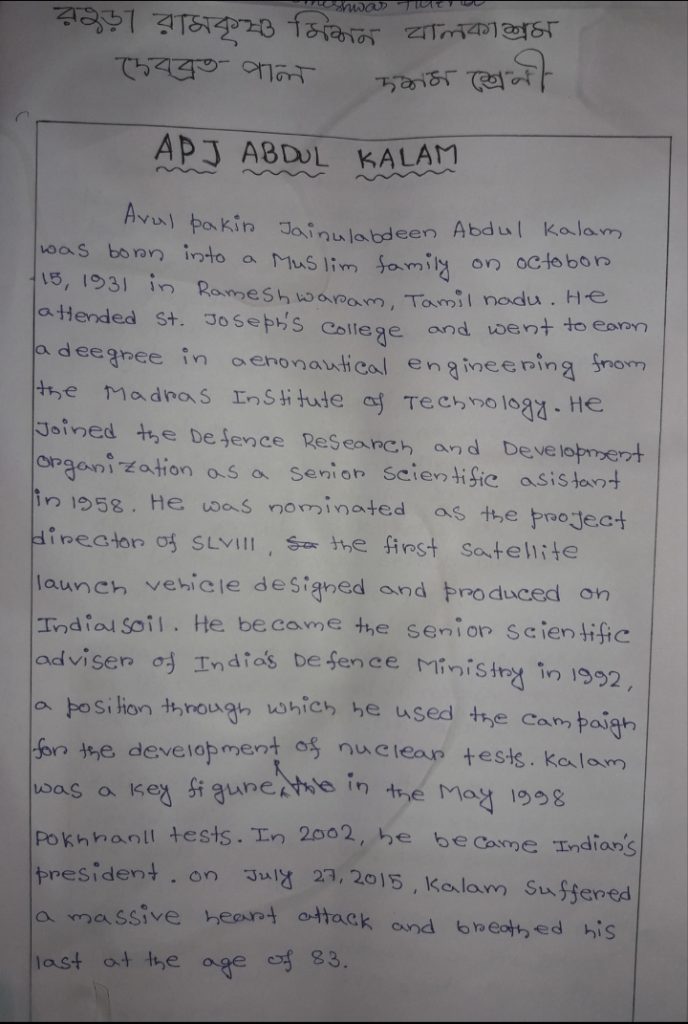 রহড়া রামকৃষ্ণ মিশন বালকাশ্রম
দেবব্রত পাল দশম শ্রেনী
APJ ABDUL KALAM
Avul pakir Jainulabdeen Abdul Kalam
was born into a Muslim family on octobor
15, 1931 in Rameshwaram, Tamil nadu. He
attended St. Joseph's College and went to earn
a deegree in aeronautical engineering from
the Madras Institute of Technology. He
Joined the Defence Research and Development
organization as a senior scientific asistant
in 1958. He was nominated as the project
director of SLVIII, the first satellite
launch vehicle designed and produced on
Indial soil. He became the senior scientific
adviser of India's Defence Ministry in 1992,
a position through which he used the campaign
for the development of nuclear tests. Kalam
was a key figure in the May 1998
PokhranII tests. In 2002, he became Indian's
president. on July 27, 2015, Kalam suffered
a massive heart attack and breathed his
last at the age of 83.